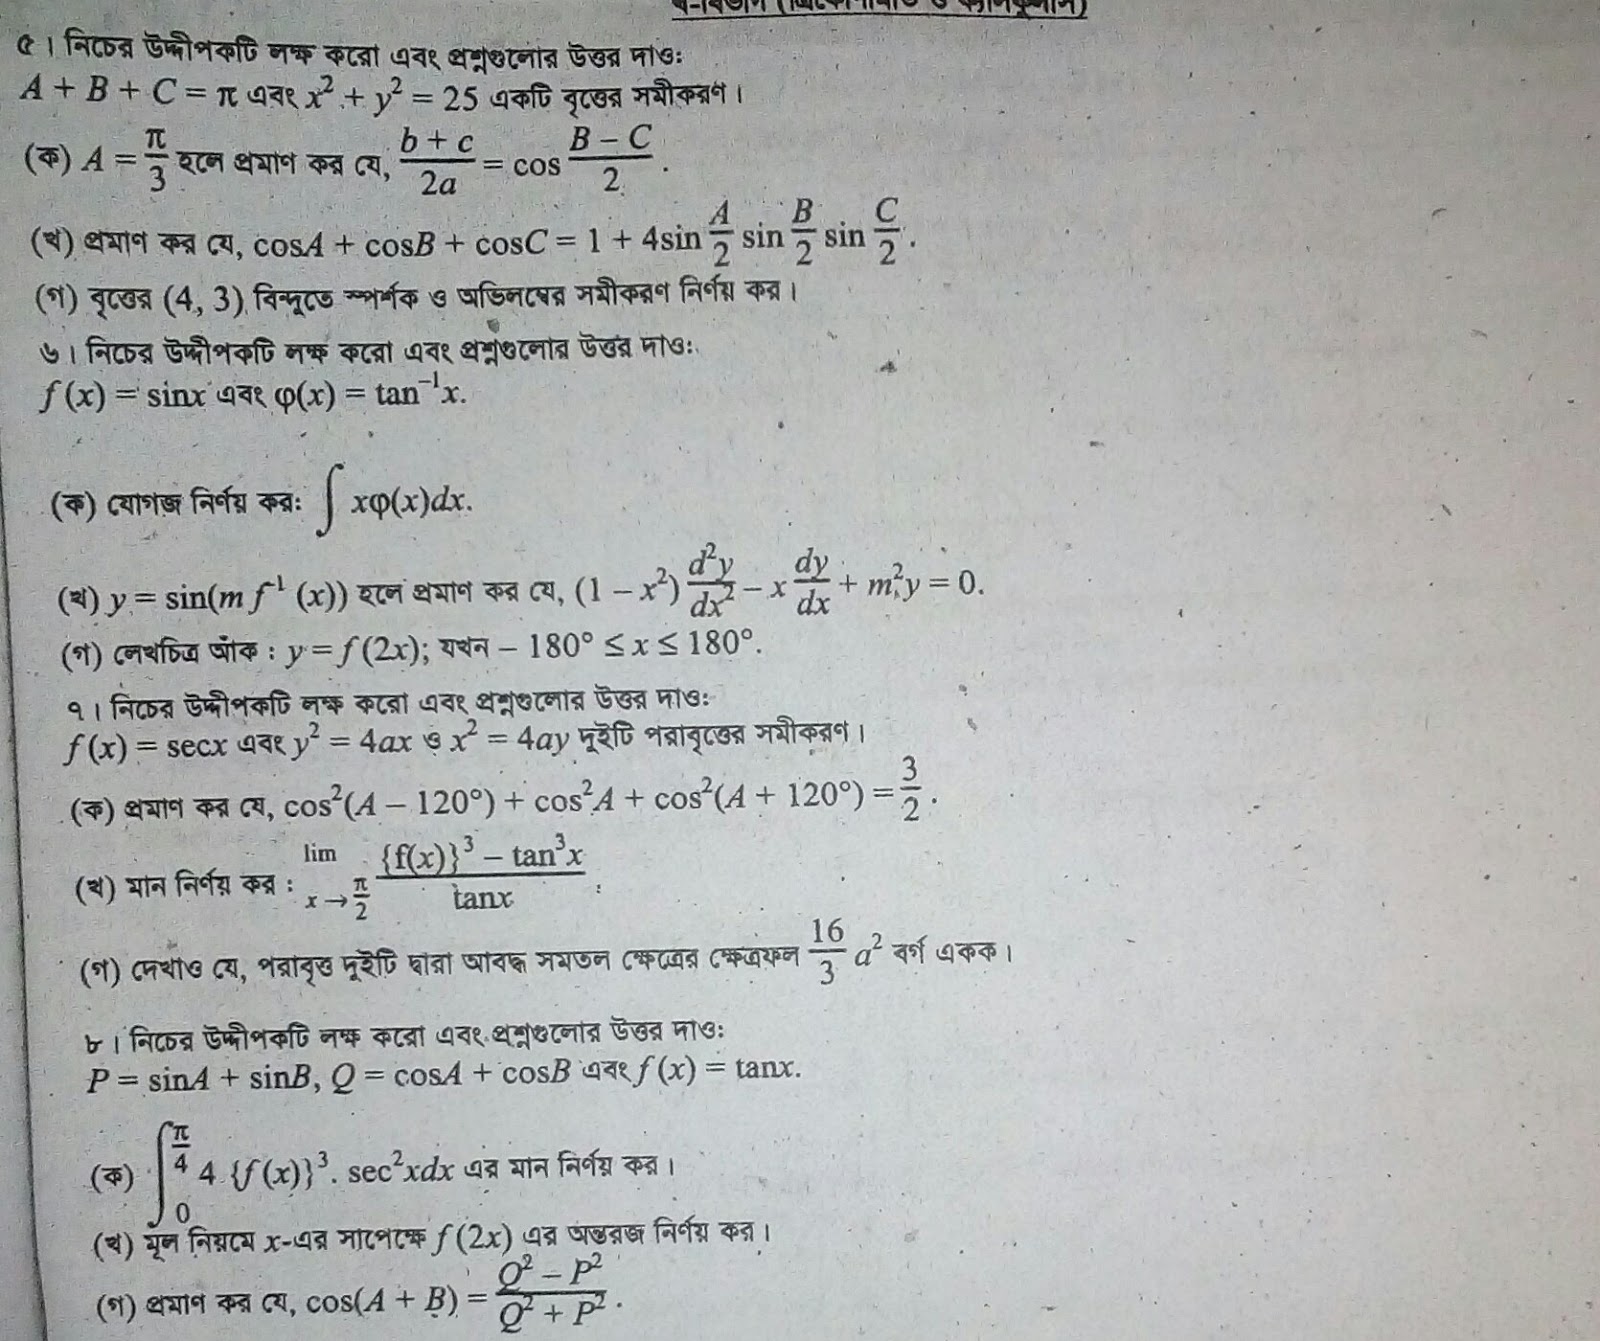 খ-বিভাগ (ত্রিকোণমিতি ও ক্যালকুলাস)
৫। নিচের উদ্দীপকটি লক্ষ করো এবং প্রশ্নগুলোর উত্তর দাও:
A + B + C = π এবং x² + y² = 25 একটি বৃত্তের সমীকরণ।
(ক) A = π/3 হলে প্রমাণ কর যে, (b + c)/2a = cos (B – C)/2 .
(খ) প্রমাণ কর যে, cosA + cosB + cosC = 1 + 4sin A/2 sin B/2 sin C/2 .
(গ) বৃত্তের (4, 3) বিন্দুতে স্পর্শক ও অভিলম্বের সমীকরণ নির্ণয় কর।
৬। নিচের উদ্দীপকটি লক্ষ করো এবং প্রশ্নগুলোর উত্তর দাও:
f (x) = sinx এবং φ(x) = tan⁻¹x.
(ক) যোগজ নির্ণয় কর: ∫ xφ(x)dx.
(খ) y = sin(m f⁻¹ (x)) হলে প্রমাণ কর যে, (1 – x²) d²y/dx² – x dy/dx + m²y = 0.
(গ) লেখচিত্র আঁক : y = f (2x); যখন – 180° ≤ x ≤ 180°.
৭। নিচের উদ্দীপকটি লক্ষ করো এবং প্রশ্নগুলোর উত্তর দাও:
f (x) = secx এবং y² = 4ax ও x² = 4ay দুইটি পরাবৃত্তের সমীকরণ।
(ক) প্রমাণ কর যে, cos²(A – 120°) + cos²A + cos²(A + 120°) = 3/2 .
(খ) মান নির্ণয় কর : lim x→π/2 ({f(x)}³ – tan³x)/tanx .
(গ) দেখাও যে, পরাবৃত্ত দুইটি দ্বারা আবদ্ধ সমতল ক্ষেত্রের ক্ষেত্রফল 16/3 a² বর্গ একক।
৮। নিচের উদ্দীপকটি লক্ষ করো এবং প্রশ্নগুলোর উত্তর দাও:
P = sinA + sinB, Q = cosA + cosB এবং f (x) = tanx.
(ক) ∫₀^(π/4) 4 {f (x)}³. sec²xdx এর মান নির্ণয় কর।
(খ) মূল নিয়মে x-এর সাপেক্ষে f (2x) এর অন্তরজ নির্ণয় কর।
(গ) প্রমাণ কর যে, cos(A + B) = (Q² – P²)/(Q² + P²) .